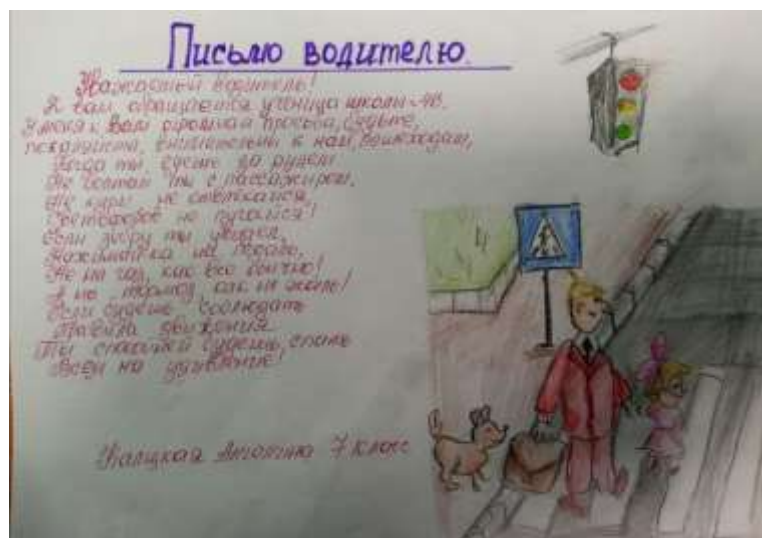 Письмо водителю.
Уважаемый водитель!
К вам обращается ученица школы
У меня к Вам огромная просьба, будьте,
пожалуйста, внимательны к нам, пешеходам,
Когда ты едешь за рулём
Не болтай ты с пассажиром,
Не кури не отвлекайся,
Светофоров не пугайся!
Если зебру ты увидел,
Нажимай-ка на педаль,
Не на газ, как все обычно!
А на тормоз, как не жаль!
Если будешь соблюдать
Правила движения
Ты спокойней будешь, спать
Всем на удивление!
Антонина 7 класс